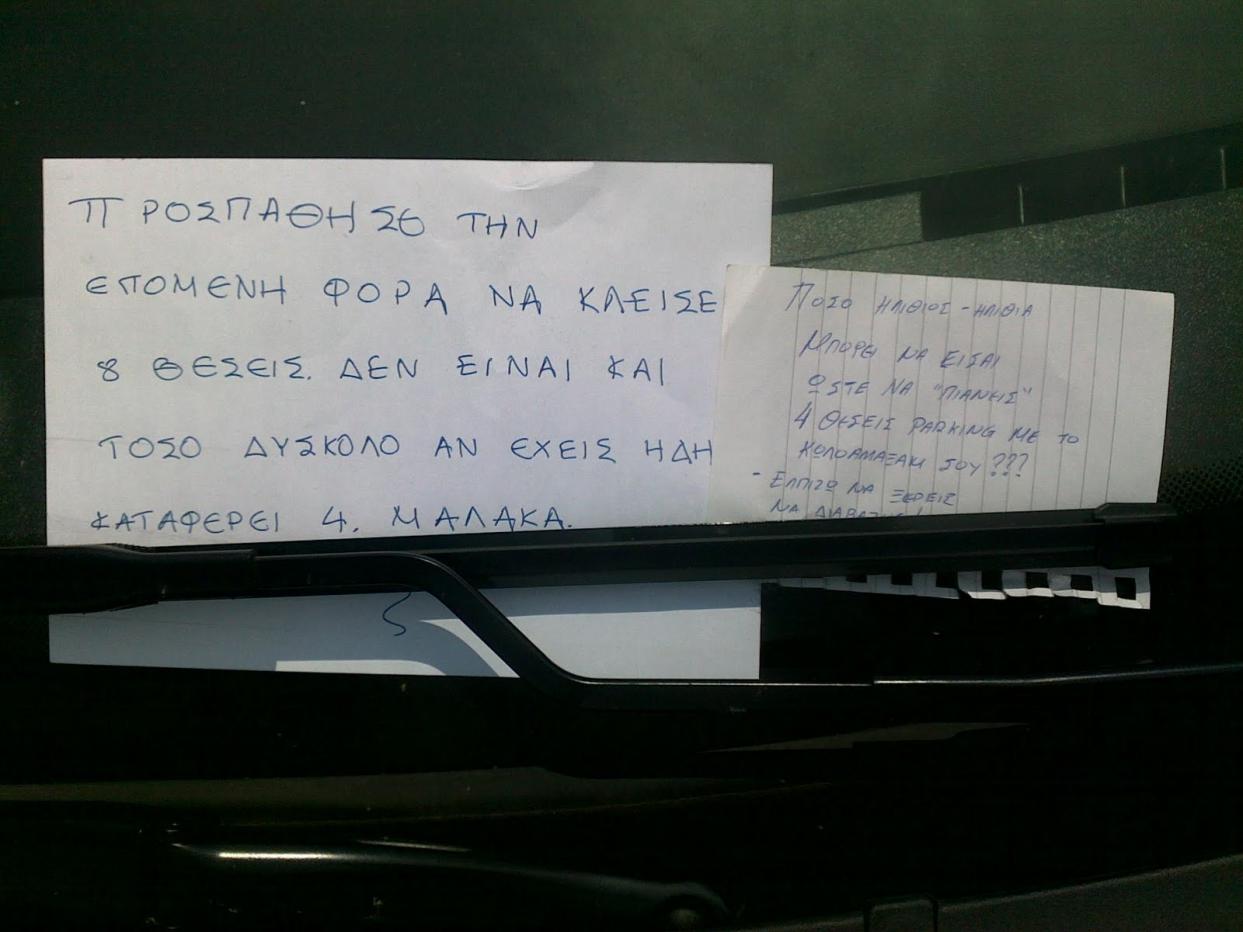 ΠΡΟΣΠΑΘΗΣΕ ΤΗΝ
ΕΠΟΜΕΝΗ ΦΟΡΑ ΝΑ ΚΛΕΙΣΕ
8 ΘΕΣΕΙΣ. ΔΕΝ ΕΙΝΑΙ ΚΑΙ
ΤΟΣΟ ΔΥΣΚΟΛΟ ΑΝ ΕΧΕΙΣ ΗΔΗ
ΚΑΤΑΦΕΡΕΙ 4. ΜΑΛΑΚΑ.
ΠΟΣΟ ΗΛΙΘΙΟΣ - ΗΛΙΘΙΑ
ΜΠΟΡΕΙ ΝΑ ΕΙΣΑΙ
ΩΣΤΕ ΝΑ "ΠΙΑΝΕΙΣ"
4 ΘΕΣΕΙΣ PARKING ΜΕ ΤΟ
ΚΩΛΟΑΜΑΞΑΚΙ ΣΟΥ ???
- ΕΛΠΙΖΩ ΝΑ ΞΕΡΕΙΣ
ΝΑ